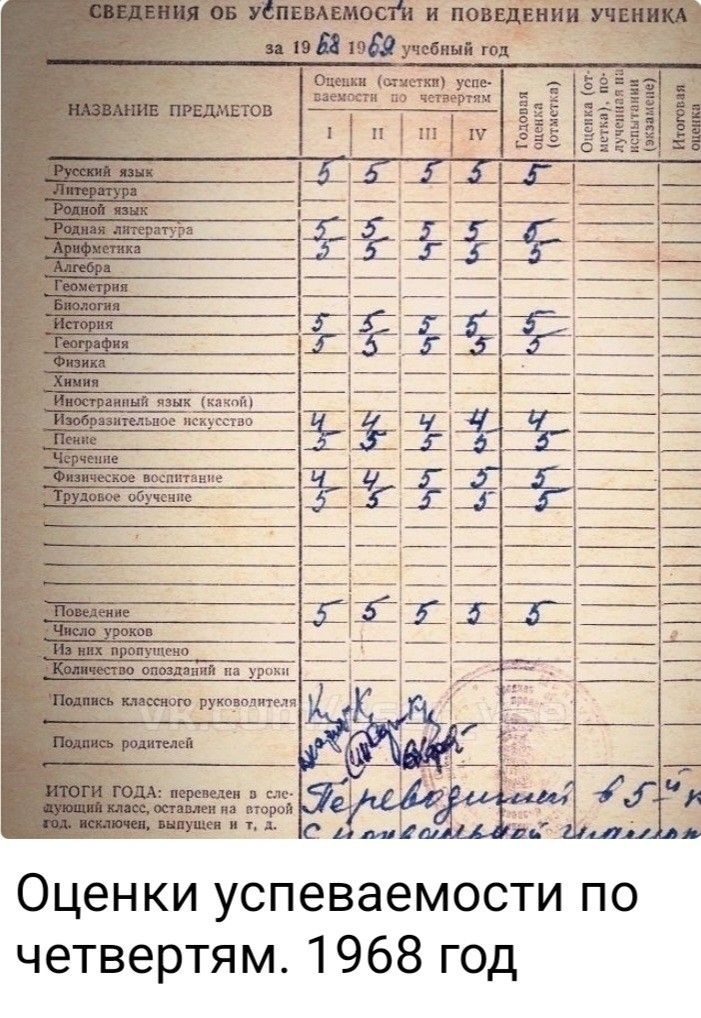 СВЕДЕНИЯ ОБ УСПЕВАЕМОСТИ И ПОВЕДЕНИИ УЧЕНИКА
за 19 68 1969 учебный год
НАЗВАНИЕ ПРЕДМЕТОВ
Оценки (отметки) успе-
ваемости по четвертям
I II III IV
Годовая
оценка
(отметка)
Оценка (от-
метка), по-
лученная на
испытании
(экзамене)
Итоговая
оценка
Русский язык 5 5 5 5 5
Литература
Родной язык
Родная литература 5 5 5 5 5
Арифметика 5 5 5 5 5
Алгебра
Геометрия
Биология
История 5 5 5 5 5
География 5 5 5 5 5
Физика
Химия
Иностранный язык (какой)
Изобразительное искусство 4 4 4 4 4
Пение 5 5 5 5 5
Черчение
Физическое воспитание 4 4 5 5 5
Трудовое обучение 5 5 5 5 5
Поведение 5 5 5 5 5
Число уроков
Из них пропущено
Количество опозданий на уроки
Подпись классного руководителя
Подпись родителей
ИТОГИ ГОДА: переведен в сле-
дующий класс, оставлен на второй
год, исключен, выпущен и т. д.
Переводится в 5-й к
с похвальной грамот
Оценки успеваемости по
четвертям. 1968 год